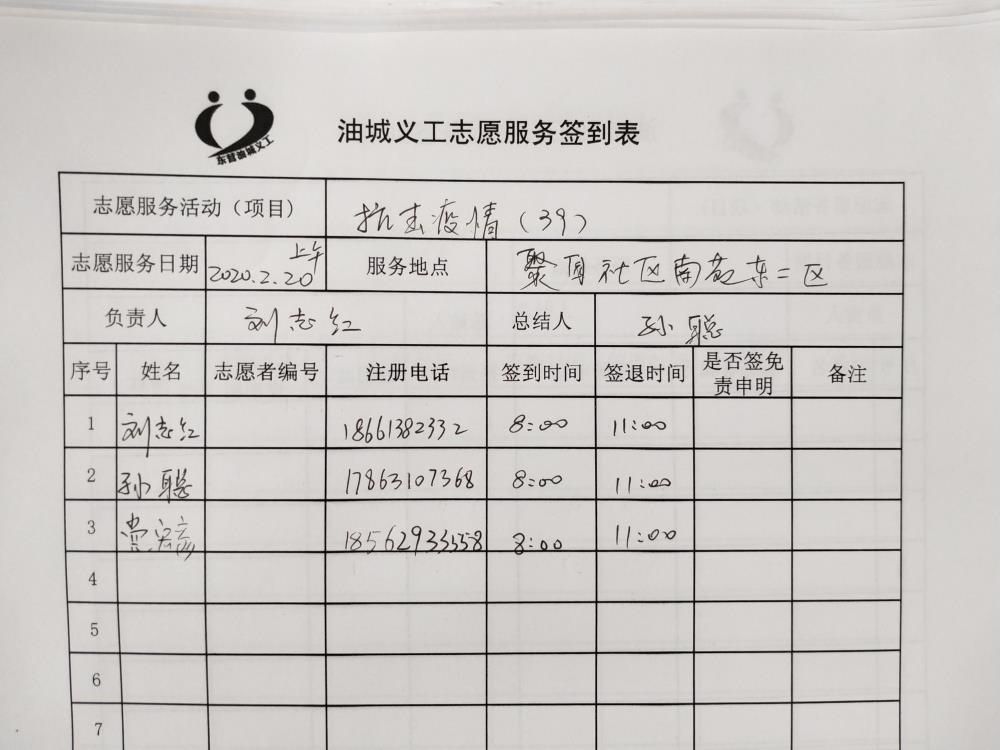 东营油城义工
油城义工志愿服务签到表
志愿服务活动（项目） 抗击疫情（39）
志愿服务日期 2020.2.20 上午 服务地点 聚园社区南苑东二区
负责人 刘志红 总结人 孙聪
序号 姓名 志愿者编号 注册电话 签到时间 签退时间 是否签免责申明 备注
1 刘志红 18661382332 8:00 11:00
2 孙聪 17863107368 8:00 11:00
3 18562933558 8:00 11:00
4
5
6
7